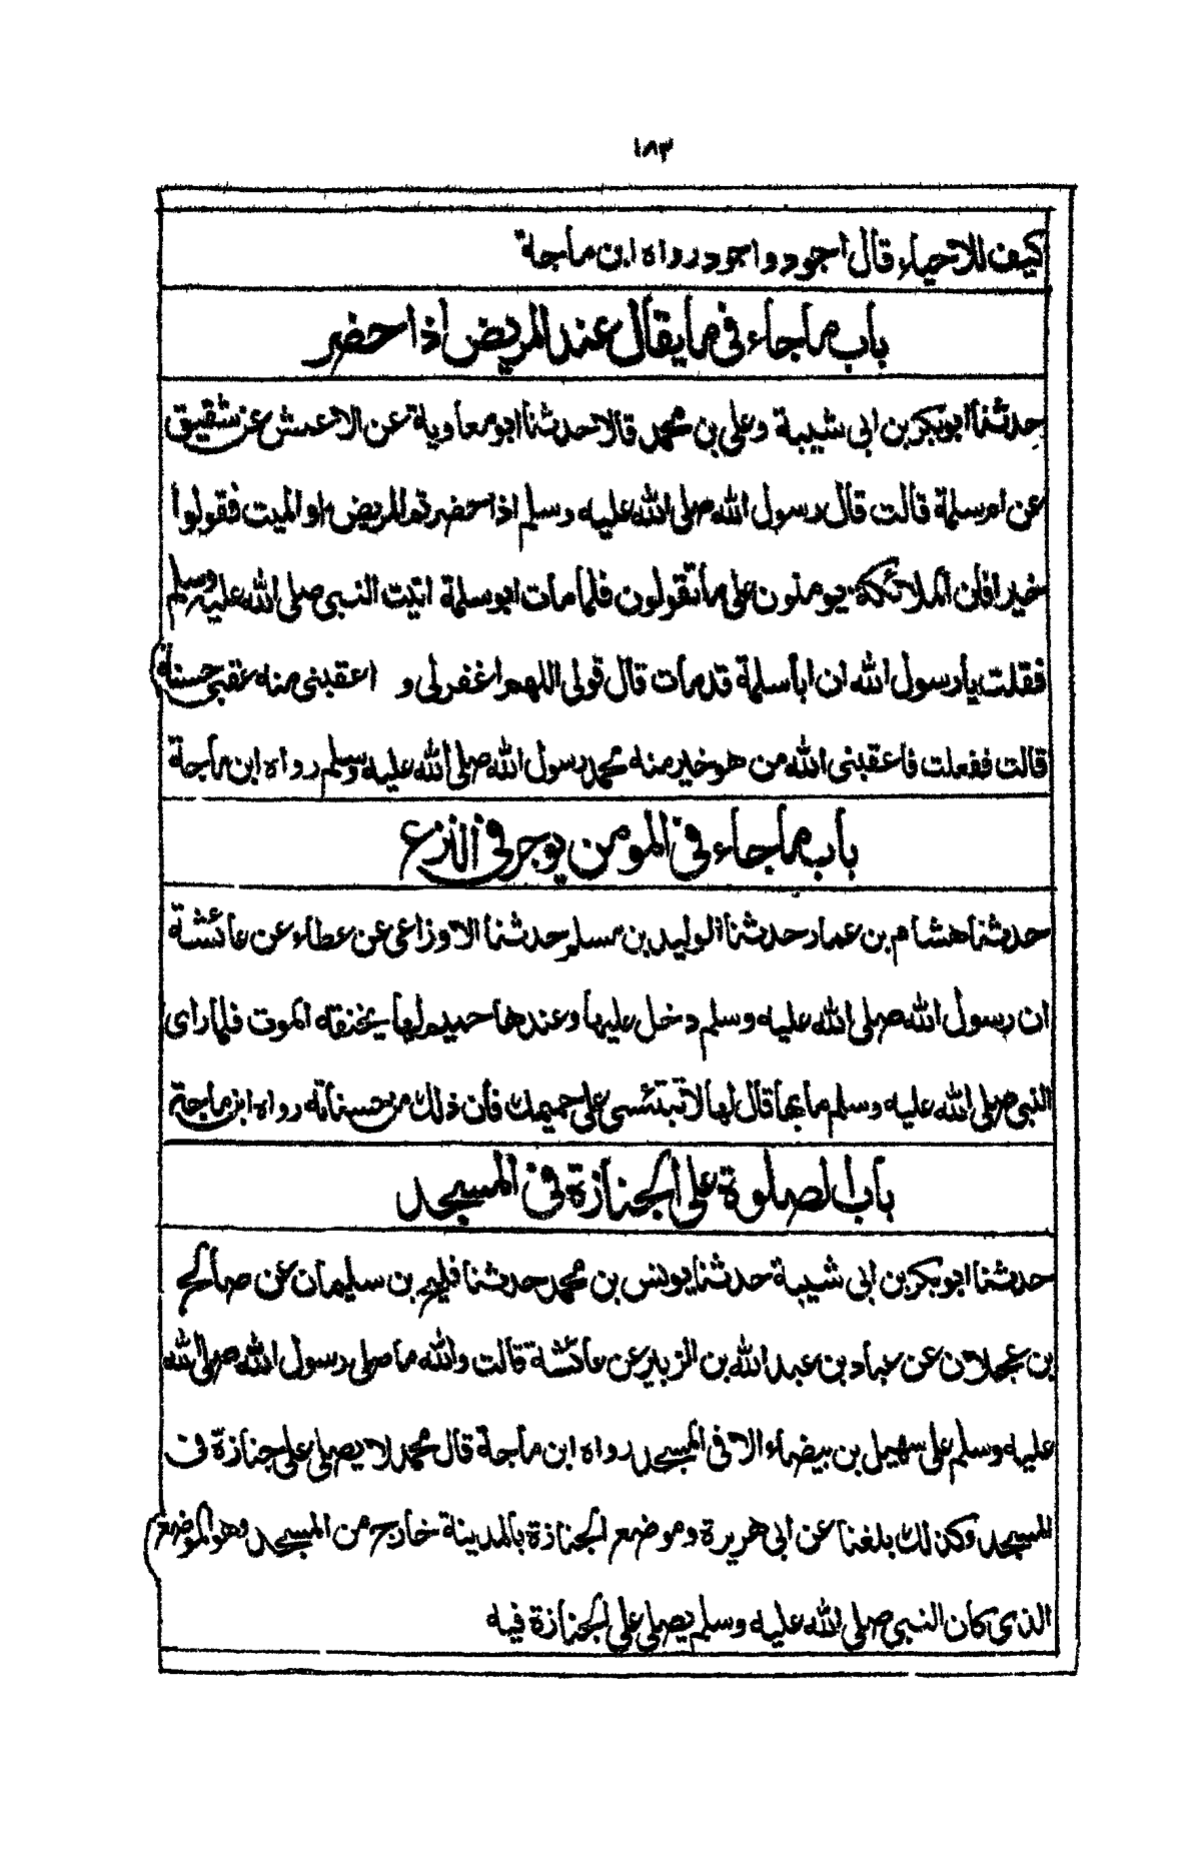 ١٨٣
كيف للاحياء قال اجود واجود رواه ابن ماجة
باب ماجاء فى ما يقال عند المريض اذا حضر
حدثنا ابوبكر بن ابى شيبة وعلى بن محمد قالا حدثنا ابو معاوية عن الاعمش عن شقيق
عن ام سلمة قالت قال رسول الله صلى الله عليه وسلم اذا حضرتم المريض او الميت فقولوا
خيرا فان الملائكة يومنون على ما تقولون فلما مات ابو سلمة اتيت النبى صلى الله عليه وسلم
فقلت يا رسول الله ان ابا سلمة قد مات قال قولى اللهم اغفر لى و (اعقبنى منه عقبى حسنة)
قالت ففعلت فاعقبنى الله من هو خير منه محمد رسول الله صلى الله عليه وسلم رواه ابن ماجة
باب ماجاء فى المومن يوجر فى النزع
حدثنا هشام بن عمار حدثنا الوليد بن مسلم حدثنا الاوزاعى عن عطاء عن عائشة
ان رسول الله صلى الله عليه وسلم دخل عليها وعندها حميم لها يخنقه الموت فلما راى
النبى صلى الله عليه وسلم ما بها قال لها لا تبتئسى على حميمك فان ذلك من حسناته رواه ابن ماجة
باب الصلوة على الجنازة فى المسجد
حدثنا ابوبكر بن ابى شيبة حدثنا يونس بن محمد حدثنا فليح بن سليمان عن صالح
بن عجلان عن عباد بن عبد الله بن الزبير عن عائشة قالت والله ما صلى رسول الله صلى الله
عليه وسلم على سهيل بن بيضاء الا فى المسجد رواه ابن ماجة قال محمد لا يصلى على جنازة فى
المسجد وكذلك بلغنا عن ابى هريرة وموضع الجنازة بالمدينة خارج من المسجد وهو الموضع
الذى كان النبى صلى الله عليه وسلم يصلى على الجنازة فيه